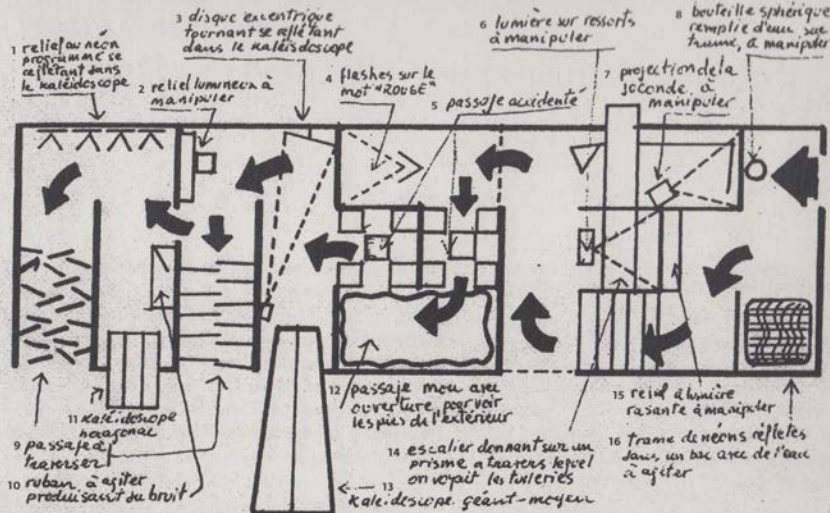 1 relief au néon
programmé se
reflétant dans
le kaléidoscope
2 relief lumineux à
manipuler
3 disque excentrique
tournant se reflétant
dans le kaléidoscope
4 flashes sur le
mot "ROUGE"
5 passage accidenté
6 lumière sur ressorts
à manipuler
7 projection de la
seconde à
manipuler
8 bouteille sphérique
remplie d'eau sur
trame, à manipuler
9 passage à
traverser
10 ruban à agiter
produisant du bruit
11 kaléidoscope
hexagonal
12 passage mou avec
ouverture pour voir
les pies de l'extérieur
13
kaléidoscope géant-moyen
14 escalier donnant sur un
prisme à travers lequel
on voyait les tuileries
15 relief à lumière
rasante à manipuler
16 trame de néons réflétés
dans un bac avec de l'eau
à agiter